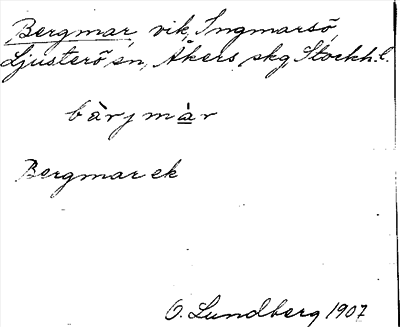 Bergmar, vik, Ingmarsö,
Ljusterö sn, Åkers skg, Stockh. l.
bàrjmàr
Bergmar ek
O. Lundberg 1907